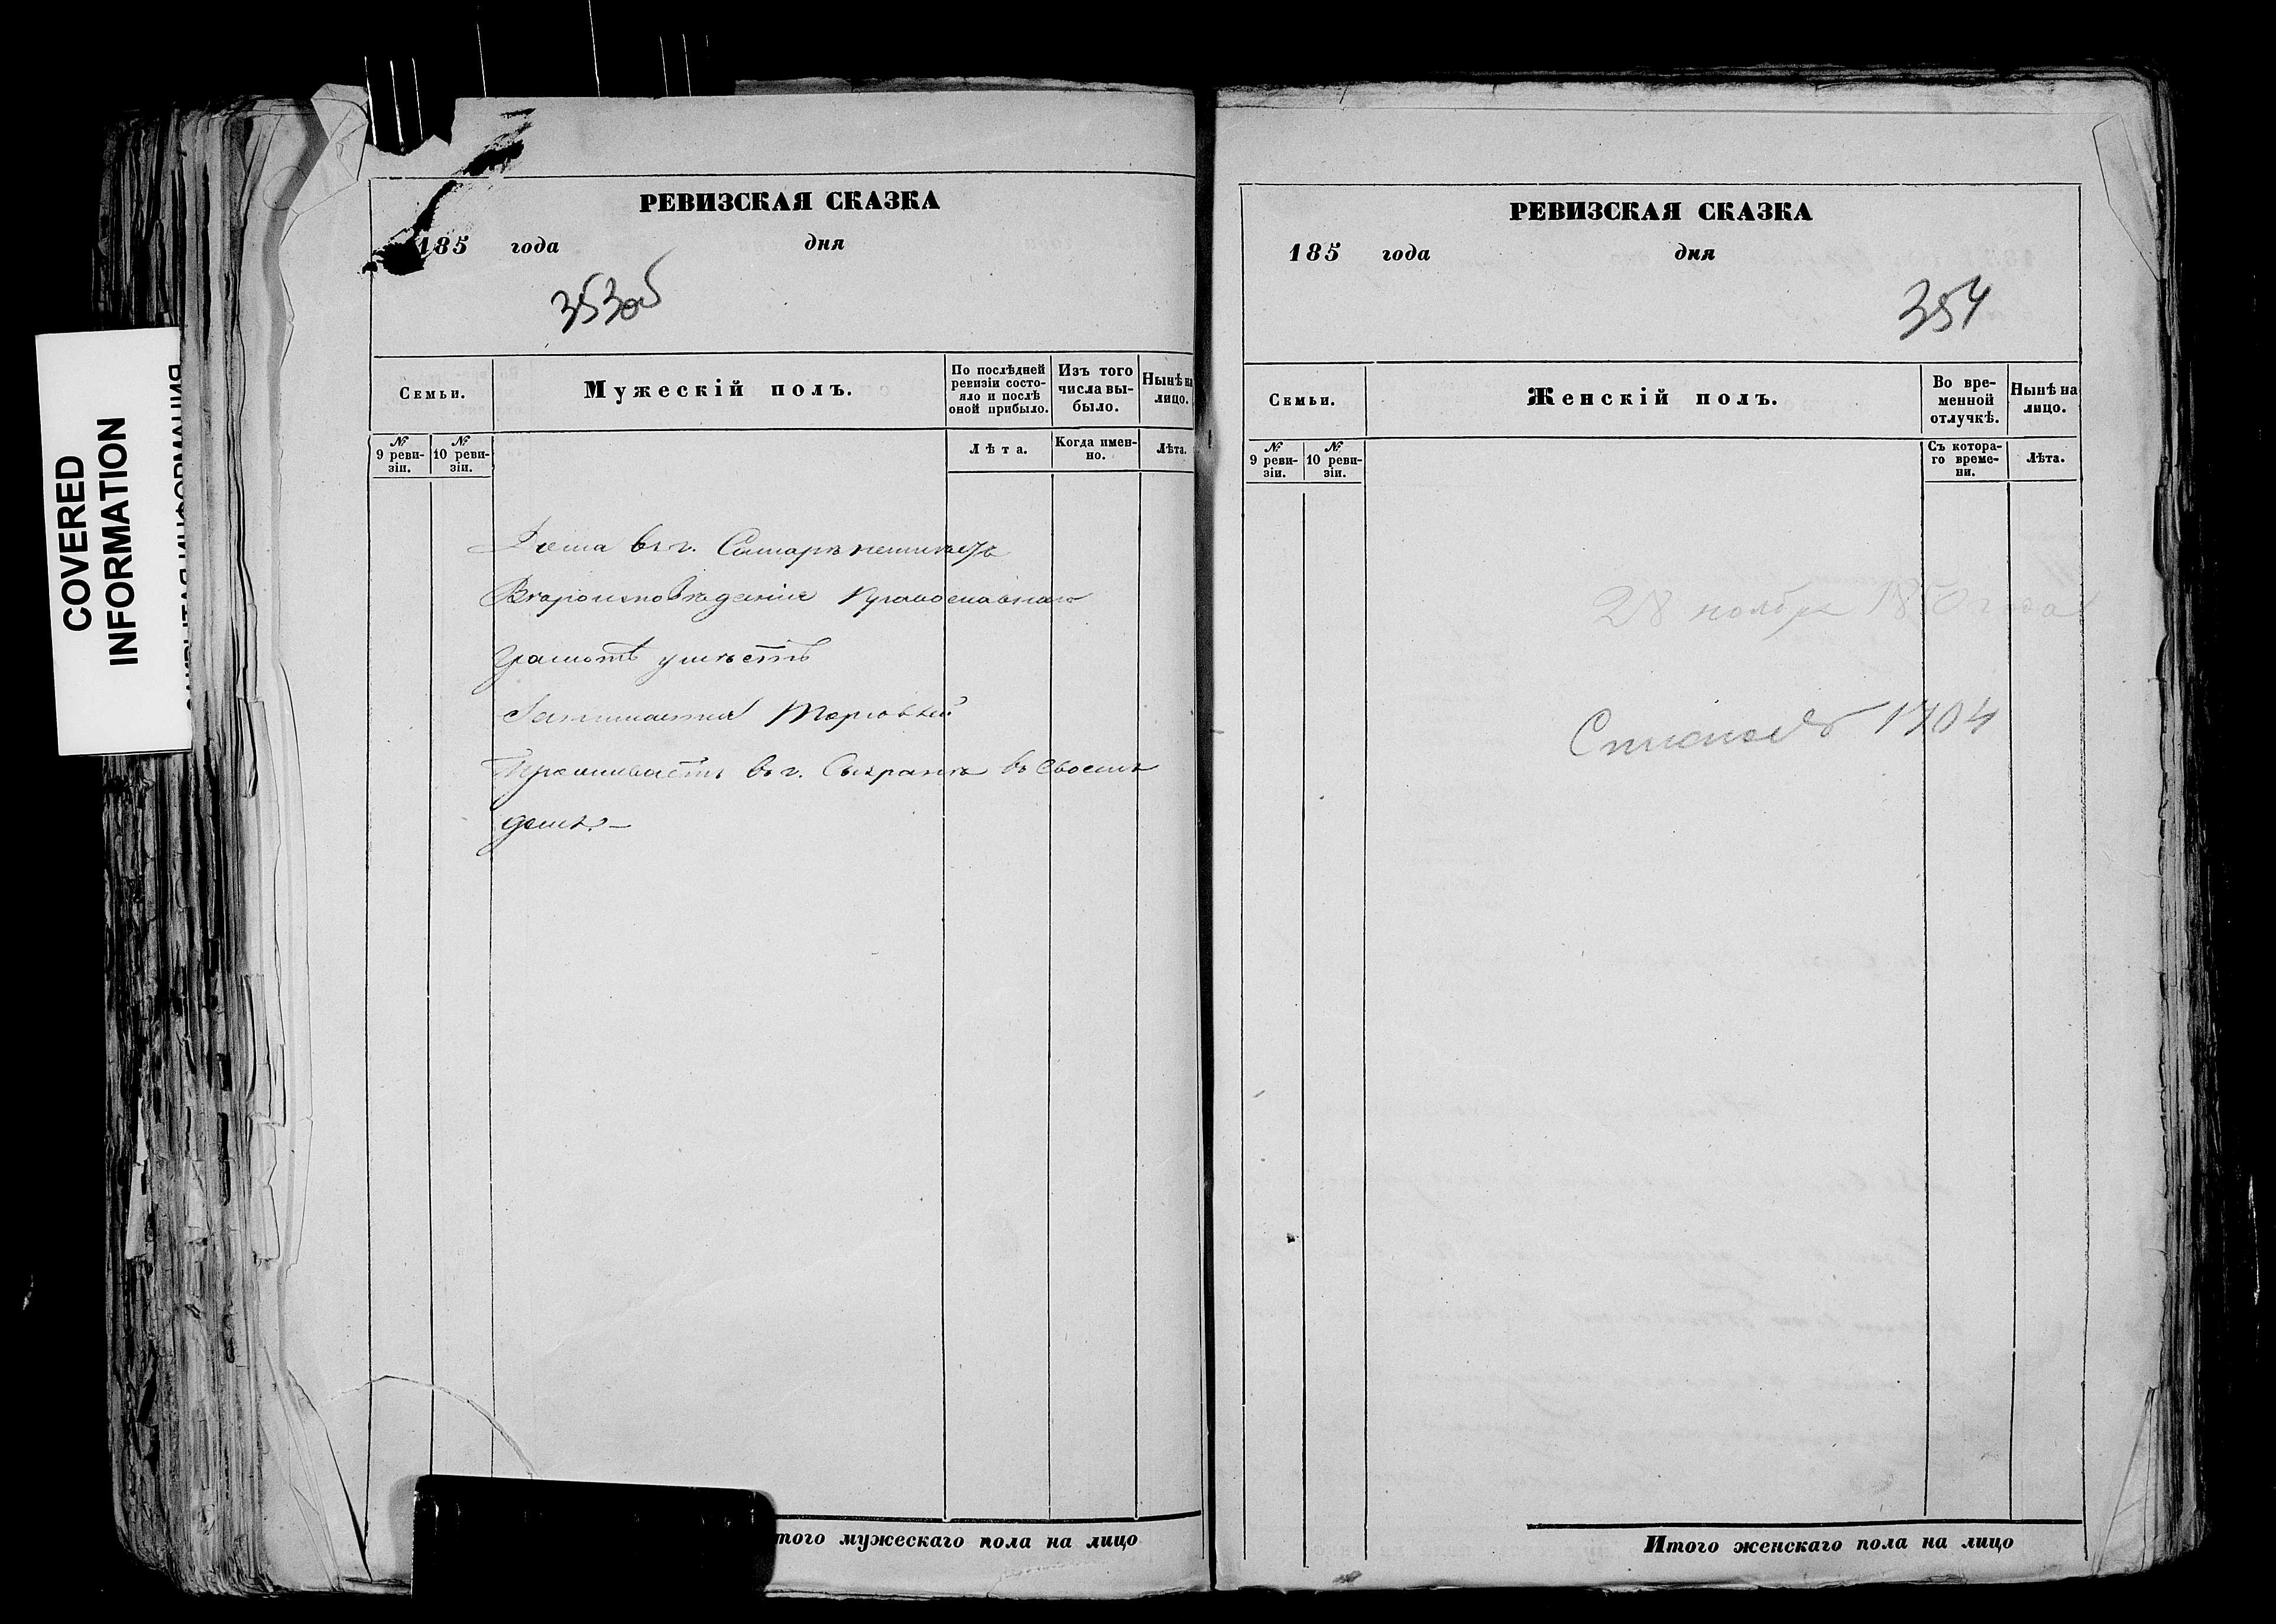 COVERED
INFORMATION
РЕВИЗСКАЯ СКАЗКА
185 года дня
353об
Семьи.
Мужескій полъ.
По послѣдней ревизіи состояло и послѣ оной прибыло.
Изъ того числа выбыло.
Нынѣ на лицо.
№ 9 ревизіи.
№ 10 ревизіи.
Лѣта.
Когда именно.
Лѣта.
Дома въ г. Самарѣ неимѣетъ
Вѣроисповѣданія Православнаго
Грамотѣ умѣетъ
Занимается Торговлей
Проживаетъ въ г. Сызранѣ въ своемъ
домѣ.—
того мужескаго пола на лицо
РЕВИЗСКАЯ СКАЗКА
185 года дня
354
Семьи.
Женскій полъ.
Во временной отлучкѣ.
Нынѣ на лицо.
№ 9 ревизіи.
№ 10 ревизіи.
Съ котораго времени.
Лѣта.
28 ноября 1850 года
1704
Итого женскаго пола на лицо